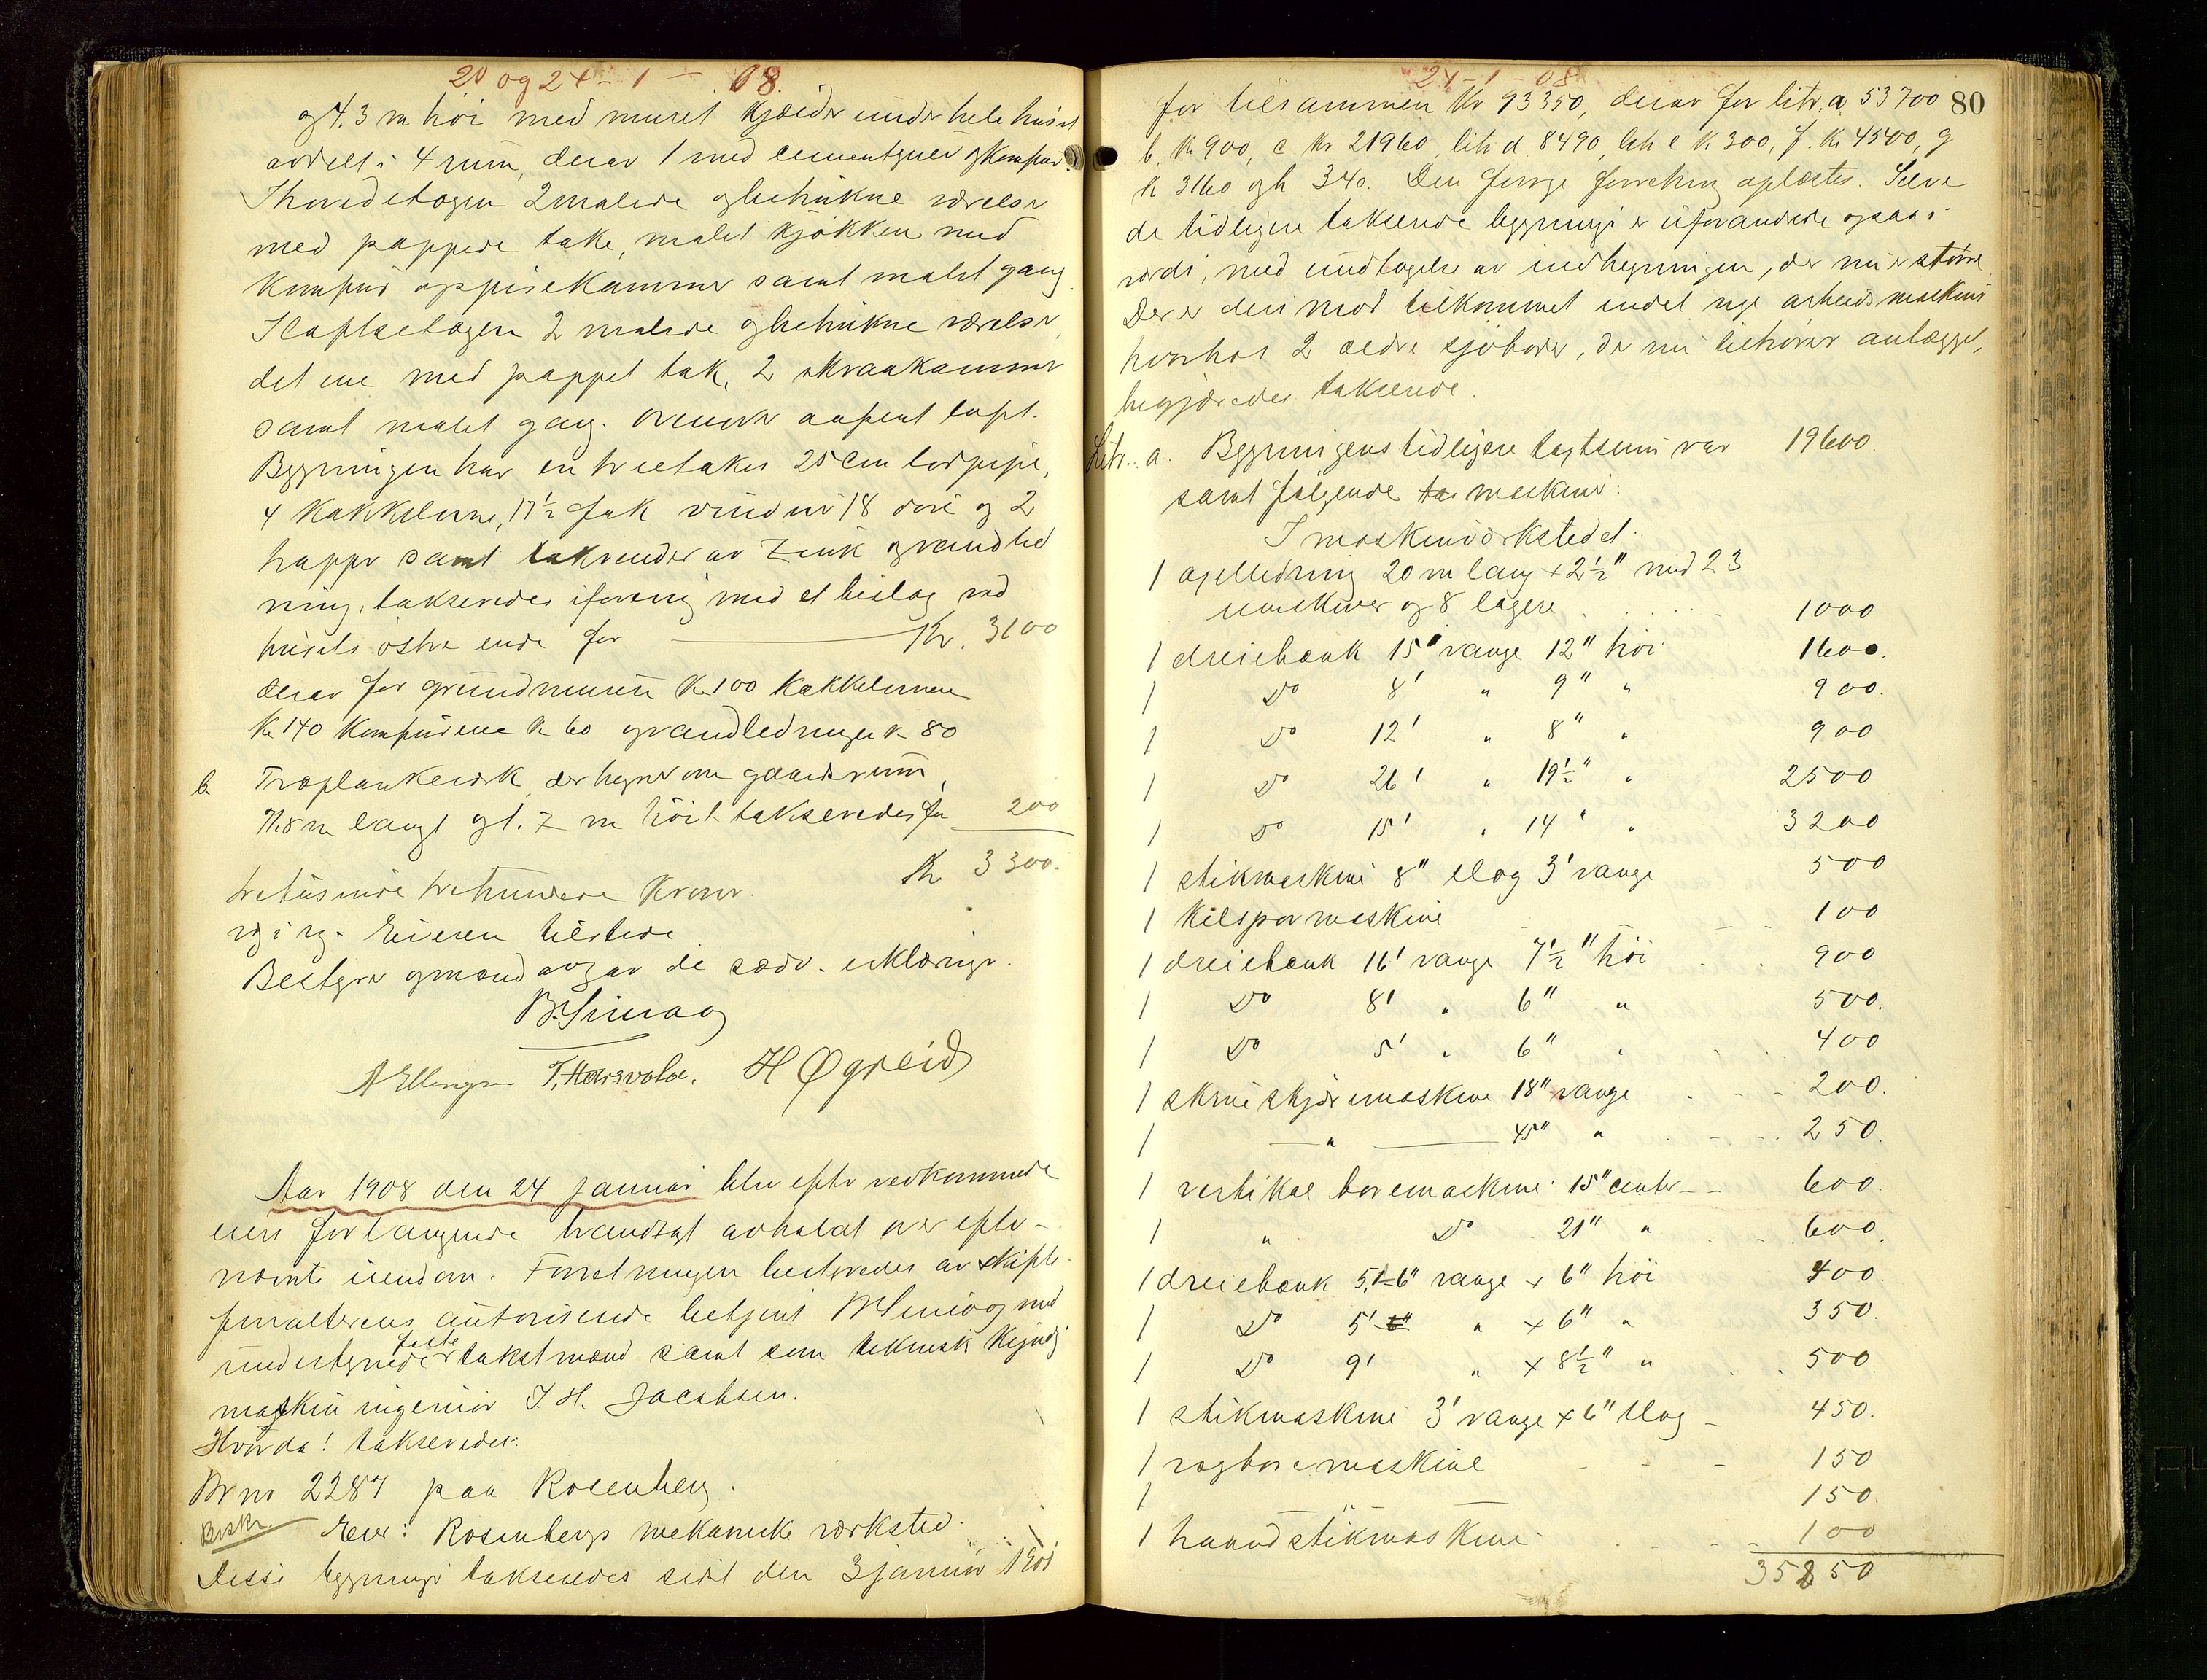 20 og 24 - 1 - 08.
og 4.3 m høi med muret kjælder under hele huset
avdelt i 4 rum, derav 1 med cementgulv og komfur.
I hovedetagen 2 malede og betrukne værelser
med pappede take, malet kjøkken med
komfur og spisekammer samt malet gang.
I loftsetagen 2 malede og betrukne værelser,
det ene med pappet tak, 2 skraakammer
samt malet gang. Overover aapent loft.
Bygningen har en treetakes 25 cm lodpipe,
4 kakkelovne, 17½ fak vinduer 18 døre og 2
trapper samt takrender av zink og vandled
ning, takseredes iforening med et bislag ved
husets østre ende for Kr. 3100
derav for grundmuren Kr 100 kakkelovnene
Kr 140 komfurene Kr 60 og vandledningen Kr 80
b. Træplankeverk, der hegner om gaardsrum,
11.8 m langt og 1.7 m høit takseredes for 200
Kr 3300.
tretusinde trehundrede kroner.
Eieren tilstede
Bestyrer og mænd avgav de sædv. erklæringer.
A Ellingsen T. Haarsvola. H Øgreid
Aar 1908 den 24 januar blev efter vedkommende
eiers forlangende brandtaxt avholdt over efter-
nævnte eiendom. Forretningen bestyredes av skifte-
forvalterens autoriserede betjent med
undertegnede faste takstmænd samt som teknisk kyndig
maskin ingeniør J. H. Jacobsen.
Hvorda! takseredes:
Br no 2287 paa Rosenberg.
Beskr. Eier: Rosenbergs mekaniske verksted.
Disse bygninger takseredes sidst den 3 januar 1901
24-1-08
80
for tilsammen Kr 93350, derav for litr. a 53700
b, Kr 900, c Kr 21960, litr d 8490, litr e Kr 300, f. Kr 4500, g
Kr 3160 og h 340. Den forrige forretning oplæstes. Selve
de tidligere takserede bygninger er uforandrede ogsaa i
værdi, med undtagelse av indhegningen, der nu er større
Der er derimod tilkommet endel nye arbeidsmaskiner
hvorhos 2 ældre sjøboder, der nu tilhører anlægget,
begjæredes takserede.
Litr. a. Bygningens tidligere taxtsum var 19600.
samt følgende maskiner:
I maskinverkstedet:
1 axelledning 20 m lang × 2½" med 23
remskiver og 8 lagere 1000
1 dreiebænk 15" vange 12" høi 1600.
1 Do 8' " 9" " 900.
1 Do 12' " 8" " 900
1 Do 26' " 19½" " 2500
1 Do 15' " 14" " 3200
1 stikmaskine 8" slag 3' vange 500
1 kilspormaskine 100
1 dreiebænk 16' vange 7½" høi 900
1 Do 8' " 6" " 500.
1 Do 5' " 6" " 400
1 skrueskjæremaskine 18" vange 200.
1 — " — 45" " 250.
1 vertikal boremaskine 15" center 600.
1 " Do 21" " 600.
1 dreiebænk 5'-6" vange × 6" høi 400.
1 Do 5' " × 6" " 350.
1 Do 9' " × 8½" " 500
1 stikmaskine 3' vange × 6" slag 450.
1 boremaskine 150
1 150.
1 haandstikmaskine 100
35850